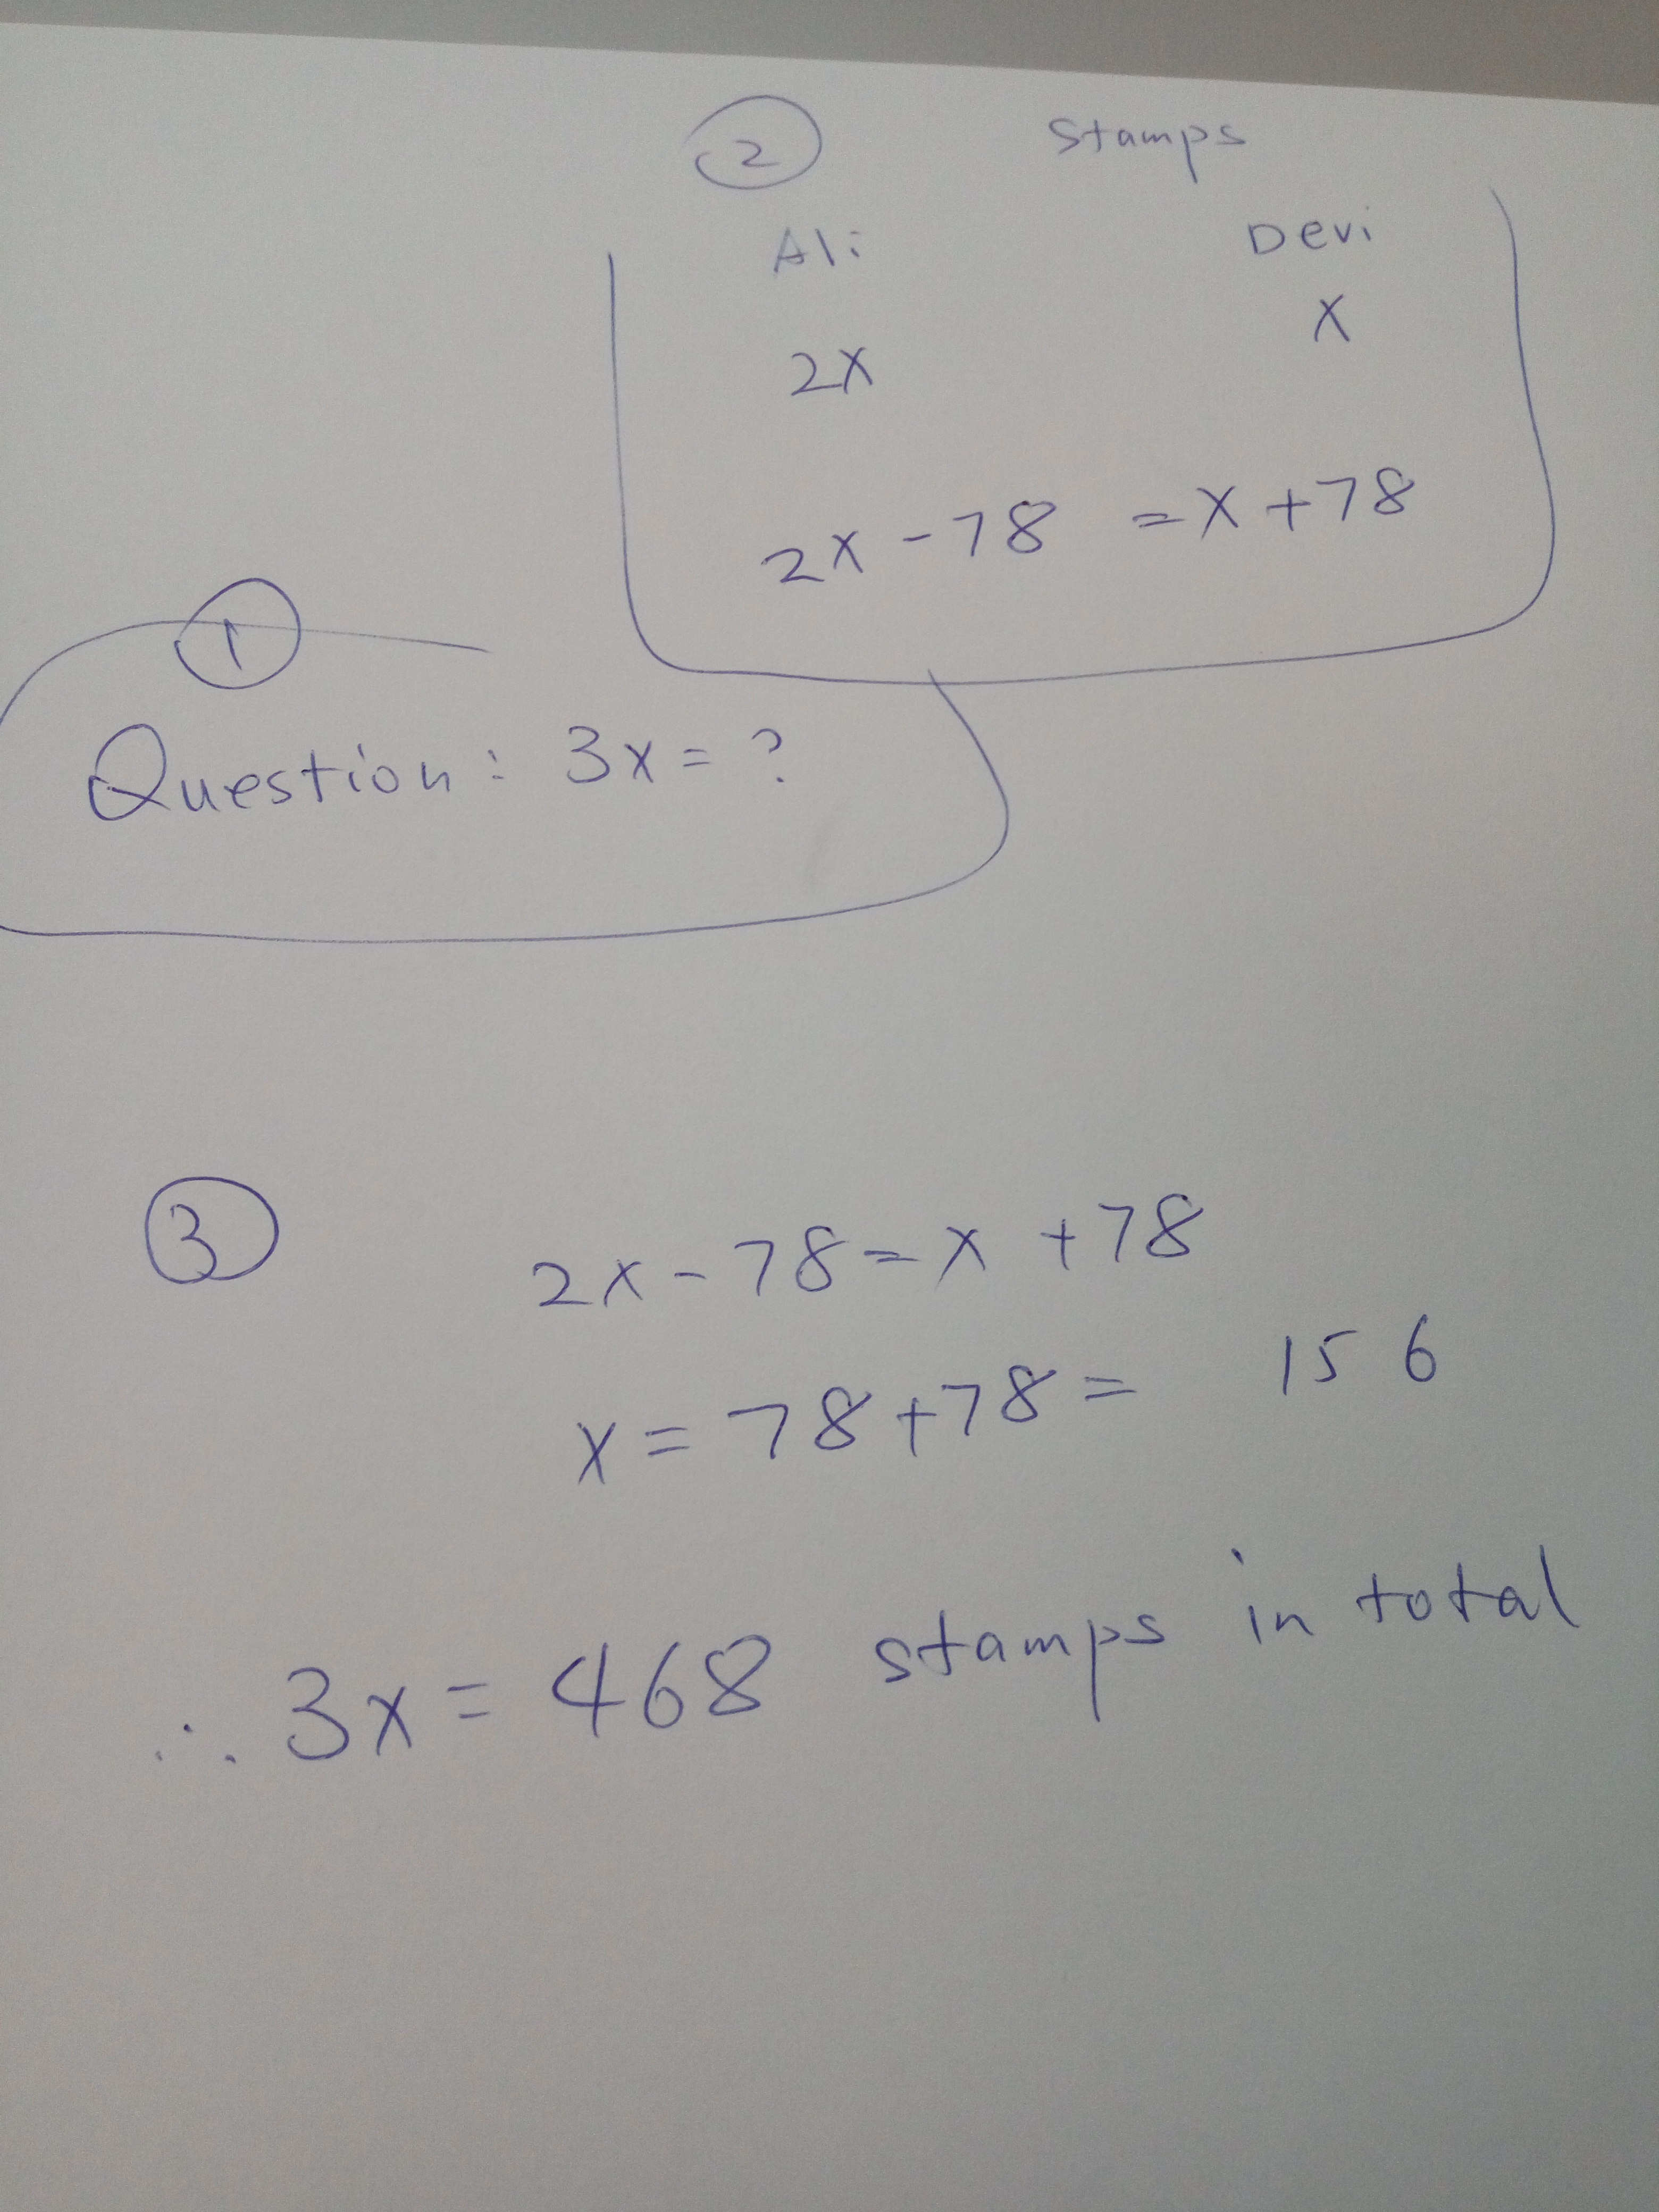 ② Stamps
Ali Devi
2x x
2x - 78 = x + 78
①
Question: 3x = ?
③ 2x - 78 = x + 78
x = 78 + 78 = 156
∴ 3x = 468 stamps in total